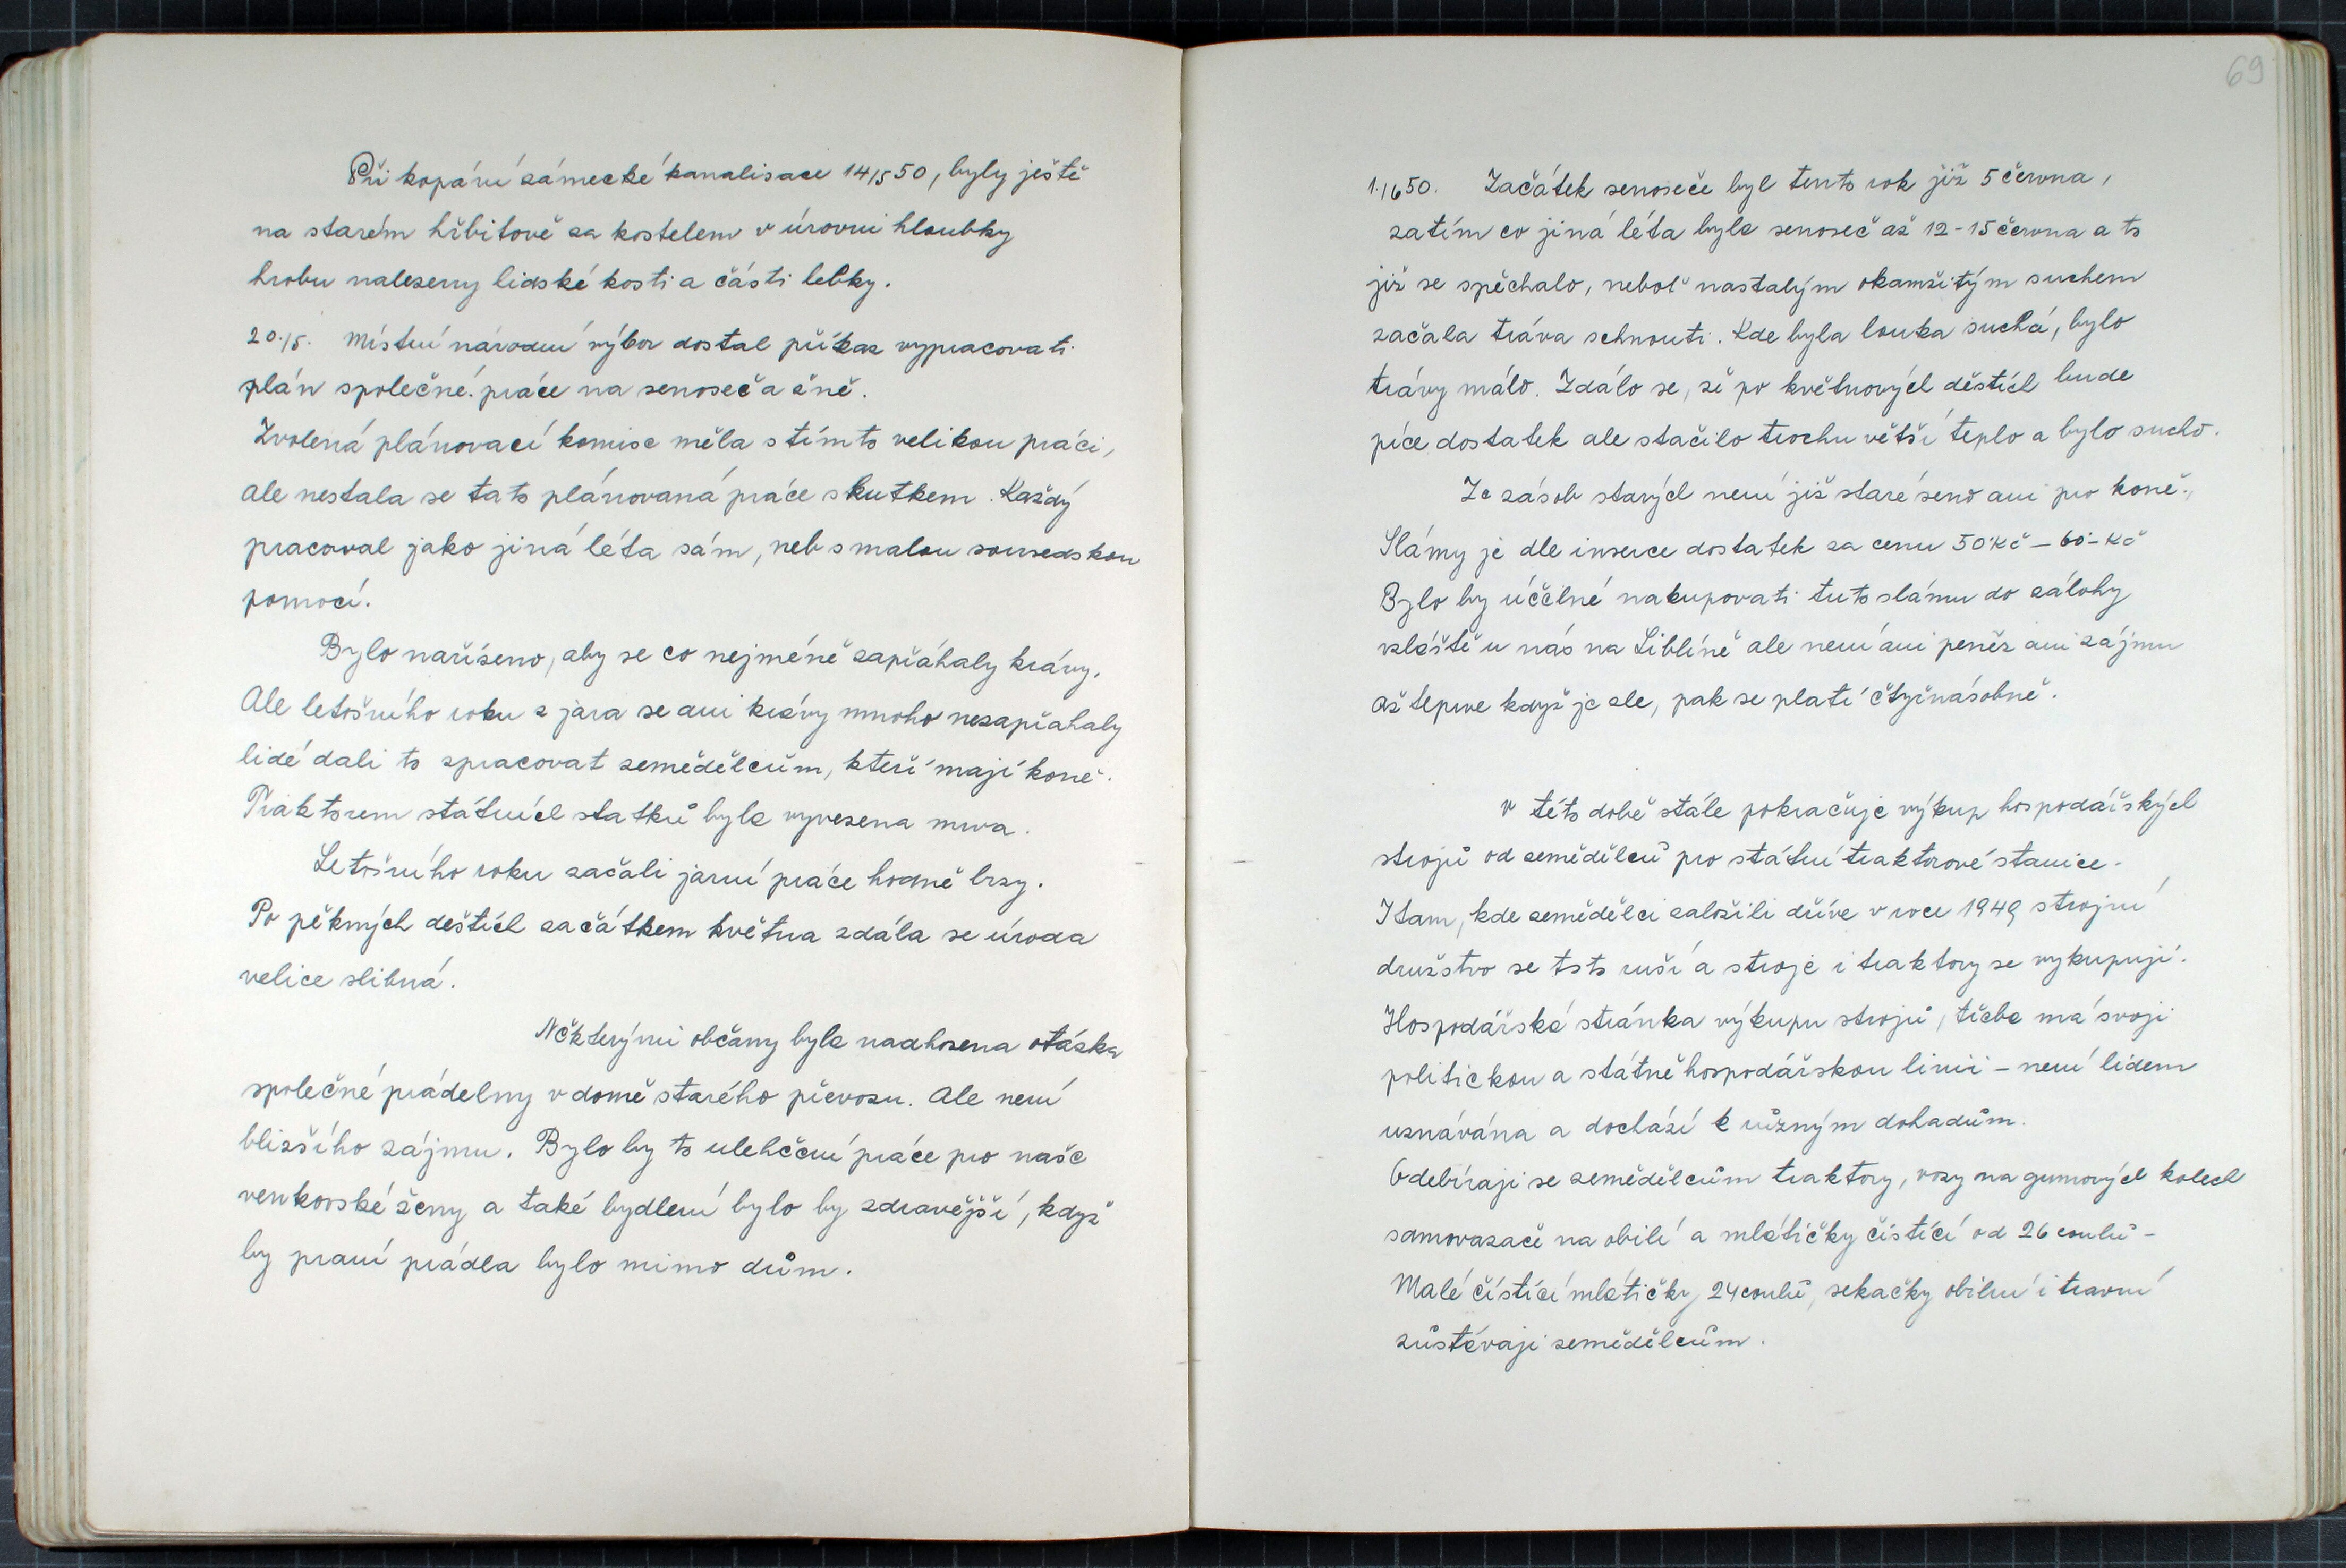 Při kopání zámecké kanalisace 14/5 50, byly ještě
na starém hřbitově za kostelem v úrovni hloubky
hrobu nalezeny lidské kosti a části lebky.
20./5. Místní národní výbor dostal příkaz vypracovati
plán společné práce na senoseč a žně.
Zvolená plánovací komise měla s tímto velikou práci,
ale nestala se tato plánovaná práce skutkem. Každý
pracoval jako jiná léta sám, neb s malou sousedskou
pomocí.
Bylo nařízeno, aby se co nejméně zapřáhaly krávy.
Ale letošního roku z jara se ani krávy mnoho nezapřahaly
lidé dali to zpracovat zemědělcům, kteří mají koně.
Traktorem státních statků byla vyvezena mrva.
Letošního roku začali jarní práce hodně brzy.
Po pěkných deštích začátkem května zdála se úroda
velice slibná.
Některými občany byla nadhozena otázka
společné prádelny v domě starého převozu. Ale není
bližšího zájmu. Bylo by to ulehčení práce pro naše
venkovské ženy a také bydlení bylo by zdravější, když
by praní prádla bylo mimo dům.
69
1./6 50. Začátek senoseče byl tento rok již 5 června,
zatím co jiná léta byla senoseč až 12-15 června a to
již se spěchalo, neboť nastalým okamžitým suchem
začala tráva schnouti. Kde byla louka suchá, bylo
trávy málo. Zdálo se, že po květnových děstích bude
píce dostatek ale stačilo trochu větší teplo a bylo sucho.
Ze zásob starých není již staré seno ani pro koně.
Slámy je dle inserce dostatek za cenu 50 Kč – 60 - Kč
Bylo by účelné nakupovati tuto slámu do zálohy
zláště u nás na Liblíně ale není ani peněz ani zájmu
až teprve když je zle, pak se platí čtyřnásobně.
V této době stále pokračuje výkup hospodářských
strojů od zemědělců pro státní traktorové stanice.
I tam, kde zemědělci založili dříve v roce 1949 strojní
družstvo se toto ruší a stroje i traktory se vykupují.
Hospodářská stránka výkupu strojů, třeba má svoji
politickou a státně hospodářskou linii – není lidem
uznávána a dochází k různým dohadům.
Odebírají se zemědělcům traktory, vozy na gumových kolech
samovazače na obilí a mlátičky čistící od 26 coulů -
Malé čístící mlátičky 24 coulů, sekačky obilní i travní
zůstávaji zemědělcům.